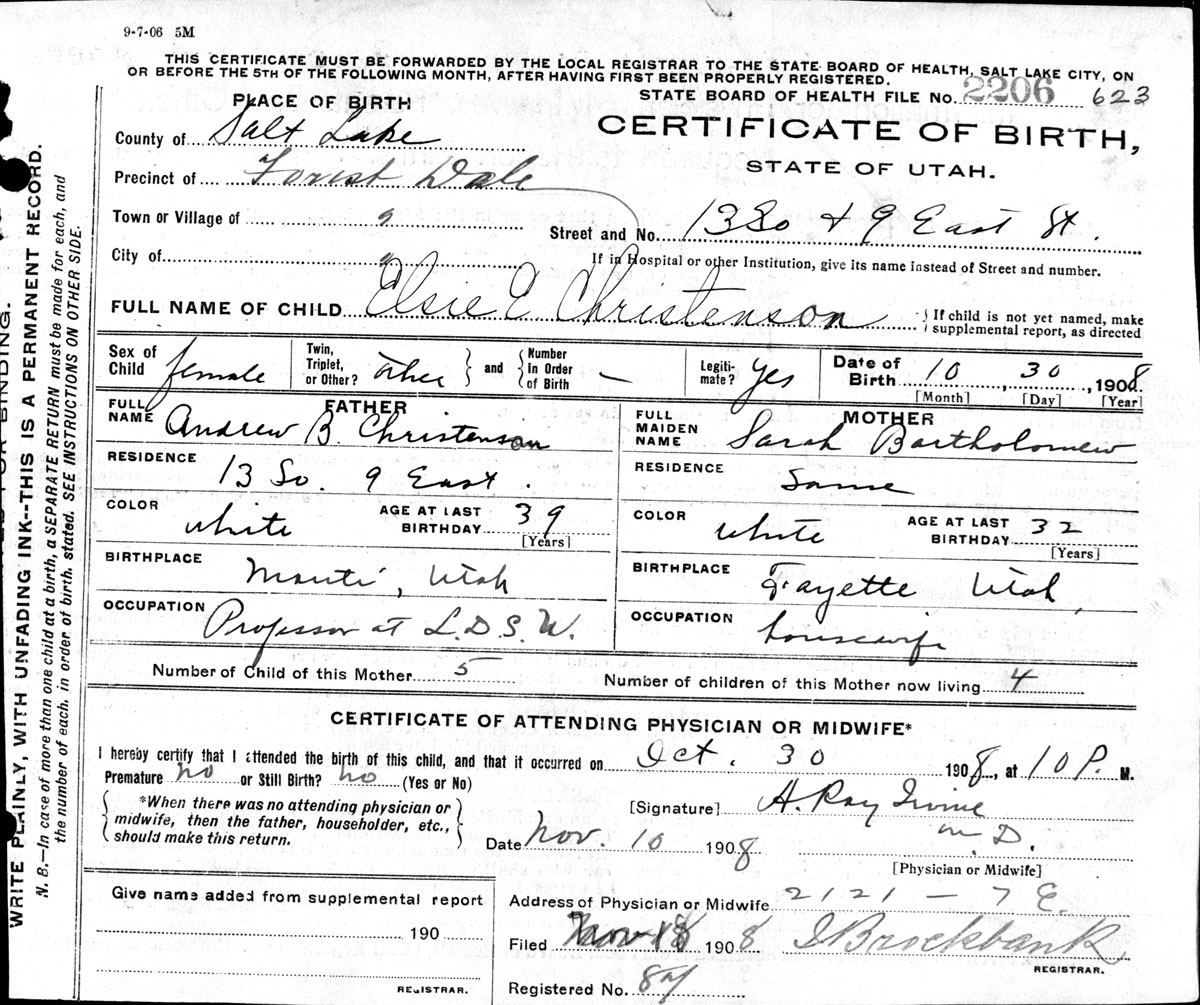 9-7-06 5M
THIS CERTIFICATE MUST BE FORWARDED BY THE LOCAL REGISTRAR TO THE STATE BOARD OF HEALTH, SALT LAKE CITY, ON
OR BEFORE THE 5TH OF THE FOLLOWING MONTH, AFTER HAVING FIRST BEEN PROPERLY REGISTERED.
STATE BOARD OF HEALTH FILE No. 2206 623
PLACE OF BIRTH
CERTIFICATE OF BIRTH,
STATE OF UTAH.
County of Salt Lake
Precinct of Forest Dale
Town or Village of
Street and No. 13 So & 9 East St.
City of
If in Hospital or other Institution, give its name instead of Street and number.
FULL NAME OF CHILD Elsie E Christenson
If child is not yet named, make
supplemental report, as directed
Sex of Child female
Twin, Triplet, or Other? other and Number In Order of Birth —
Legiti-mate? Yes
Date of Birth 10 30, 1908
[Month] [Day] [Year]
FATHER
FULL NAME Andrew B. Christenson
RESIDENCE 13 So. 9 East.
COLOR white AGE AT LAST BIRTHDAY 39 [Years]
BIRTHPLACE Manti, Utah
OCCUPATION Professor at L.D.S.U.
MOTHER
FULL MAIDEN NAME Sarah Bartholomew
RESIDENCE Same
COLOR white AGE AT LAST BIRTHDAY 32 [Years]
BIRTHPLACE Fayette Utah,
OCCUPATION housewife
Number of Child of this Mother 5
Number of children of this Mother now living 4
CERTIFICATE OF ATTENDING PHYSICIAN OR MIDWIFE*
I hereby certify that I attended the birth of this child, and that it occurred on Oct. 30 1908, at 10 P. M.
Premature no or Still Birth? no (Yes or No)
*When there was no attending physician or
midwife, then the father, householder, etc.,
should make this return.
[Signature] A. Ray Irvine
M.D.
Date Nov. 10 1908
[Physician or Midwife]
Give name added from supplemental report
190
REGISTRAR.
Address of Physician or Midwife 2121 - 7 E.
Filed Nov 18 1908 Brockbank
REGISTRAR.
Registered No. 87
WRITE PLAINLY, WITH UNFADING INK--THIS IS A PERMANENT RECORD.
N. B.—In case of more than one child at a birth, a SEPARATE RETURN must be made for each, and
the number of each, in order of birth, stated. SEE INSTRUCTIONS ON OTHER SIDE.
FOR BINDING.